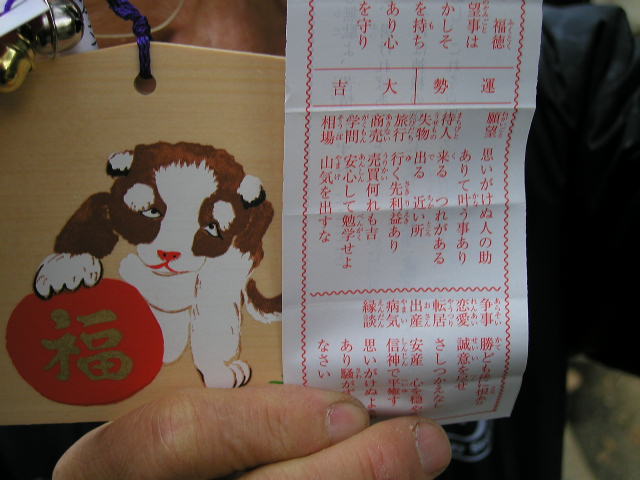 福徳
望事は
かしそ
を持ち
あり心
を守り
運勢 大吉
願望 思いがけぬ人の助
ありて叶う事あり
待人 来る つれがある
失物 出る 近い所
旅行 行く先利益あり
商売 売買何れも吉
学問 安心して勉学せよ
相場 山気を出すな
争事 勝ども
恋愛 誠意を
転居 さしつかえなし
出産 安産 心を穏
病気 信神で平癒す
縁談 思いがけぬよ
あり騒が
なさい
福